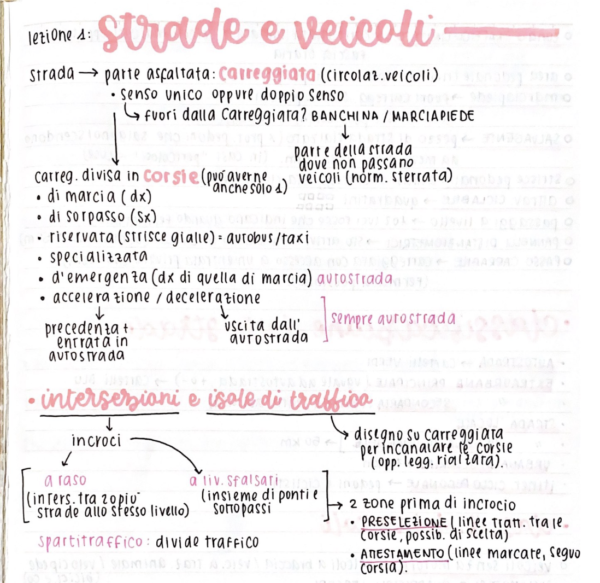 lezione 1: strade e veicoli
strada → parte asfaltata: carreggiata (circolaz. veicoli)
• senso unico oppure doppio senso
↳ fuori dalla carreggiata? BANCHINA / MARCIAPIEDE
parte della strada
dove non passano
veicoli (norm. sterrata)
carreg. divisa in corsie (può averne
anche solo 1)
• di marcia (dx)
• di sorpasso (sx)
• riservata (strisce gialle) = autobus/taxi
• specializzata
• d'emergenza (dx di quella di marcia) autostrada
• accelerazione / decelerazione
sempre autostrada
precedenza +
entrata in
autostrada
uscita dall'
autostrada
• intersezioni e isole di traffico
incroci
disegno su carreggiata
per incanalare le corsie
(opp. legg. rialzata).
a raso
(inters. tra 2 o più
strade allo stesso livello)
a liv. sfalsati
(insieme di ponti e
sottopassi
→ 2 zone prima di incrocio
• PRESELEZIONE (linee tratt. tra le
corsie, possib. di scelta)
• ANESTAMENTO (linee marcate, seguo
corsia).
spartitraffico: divide traffico